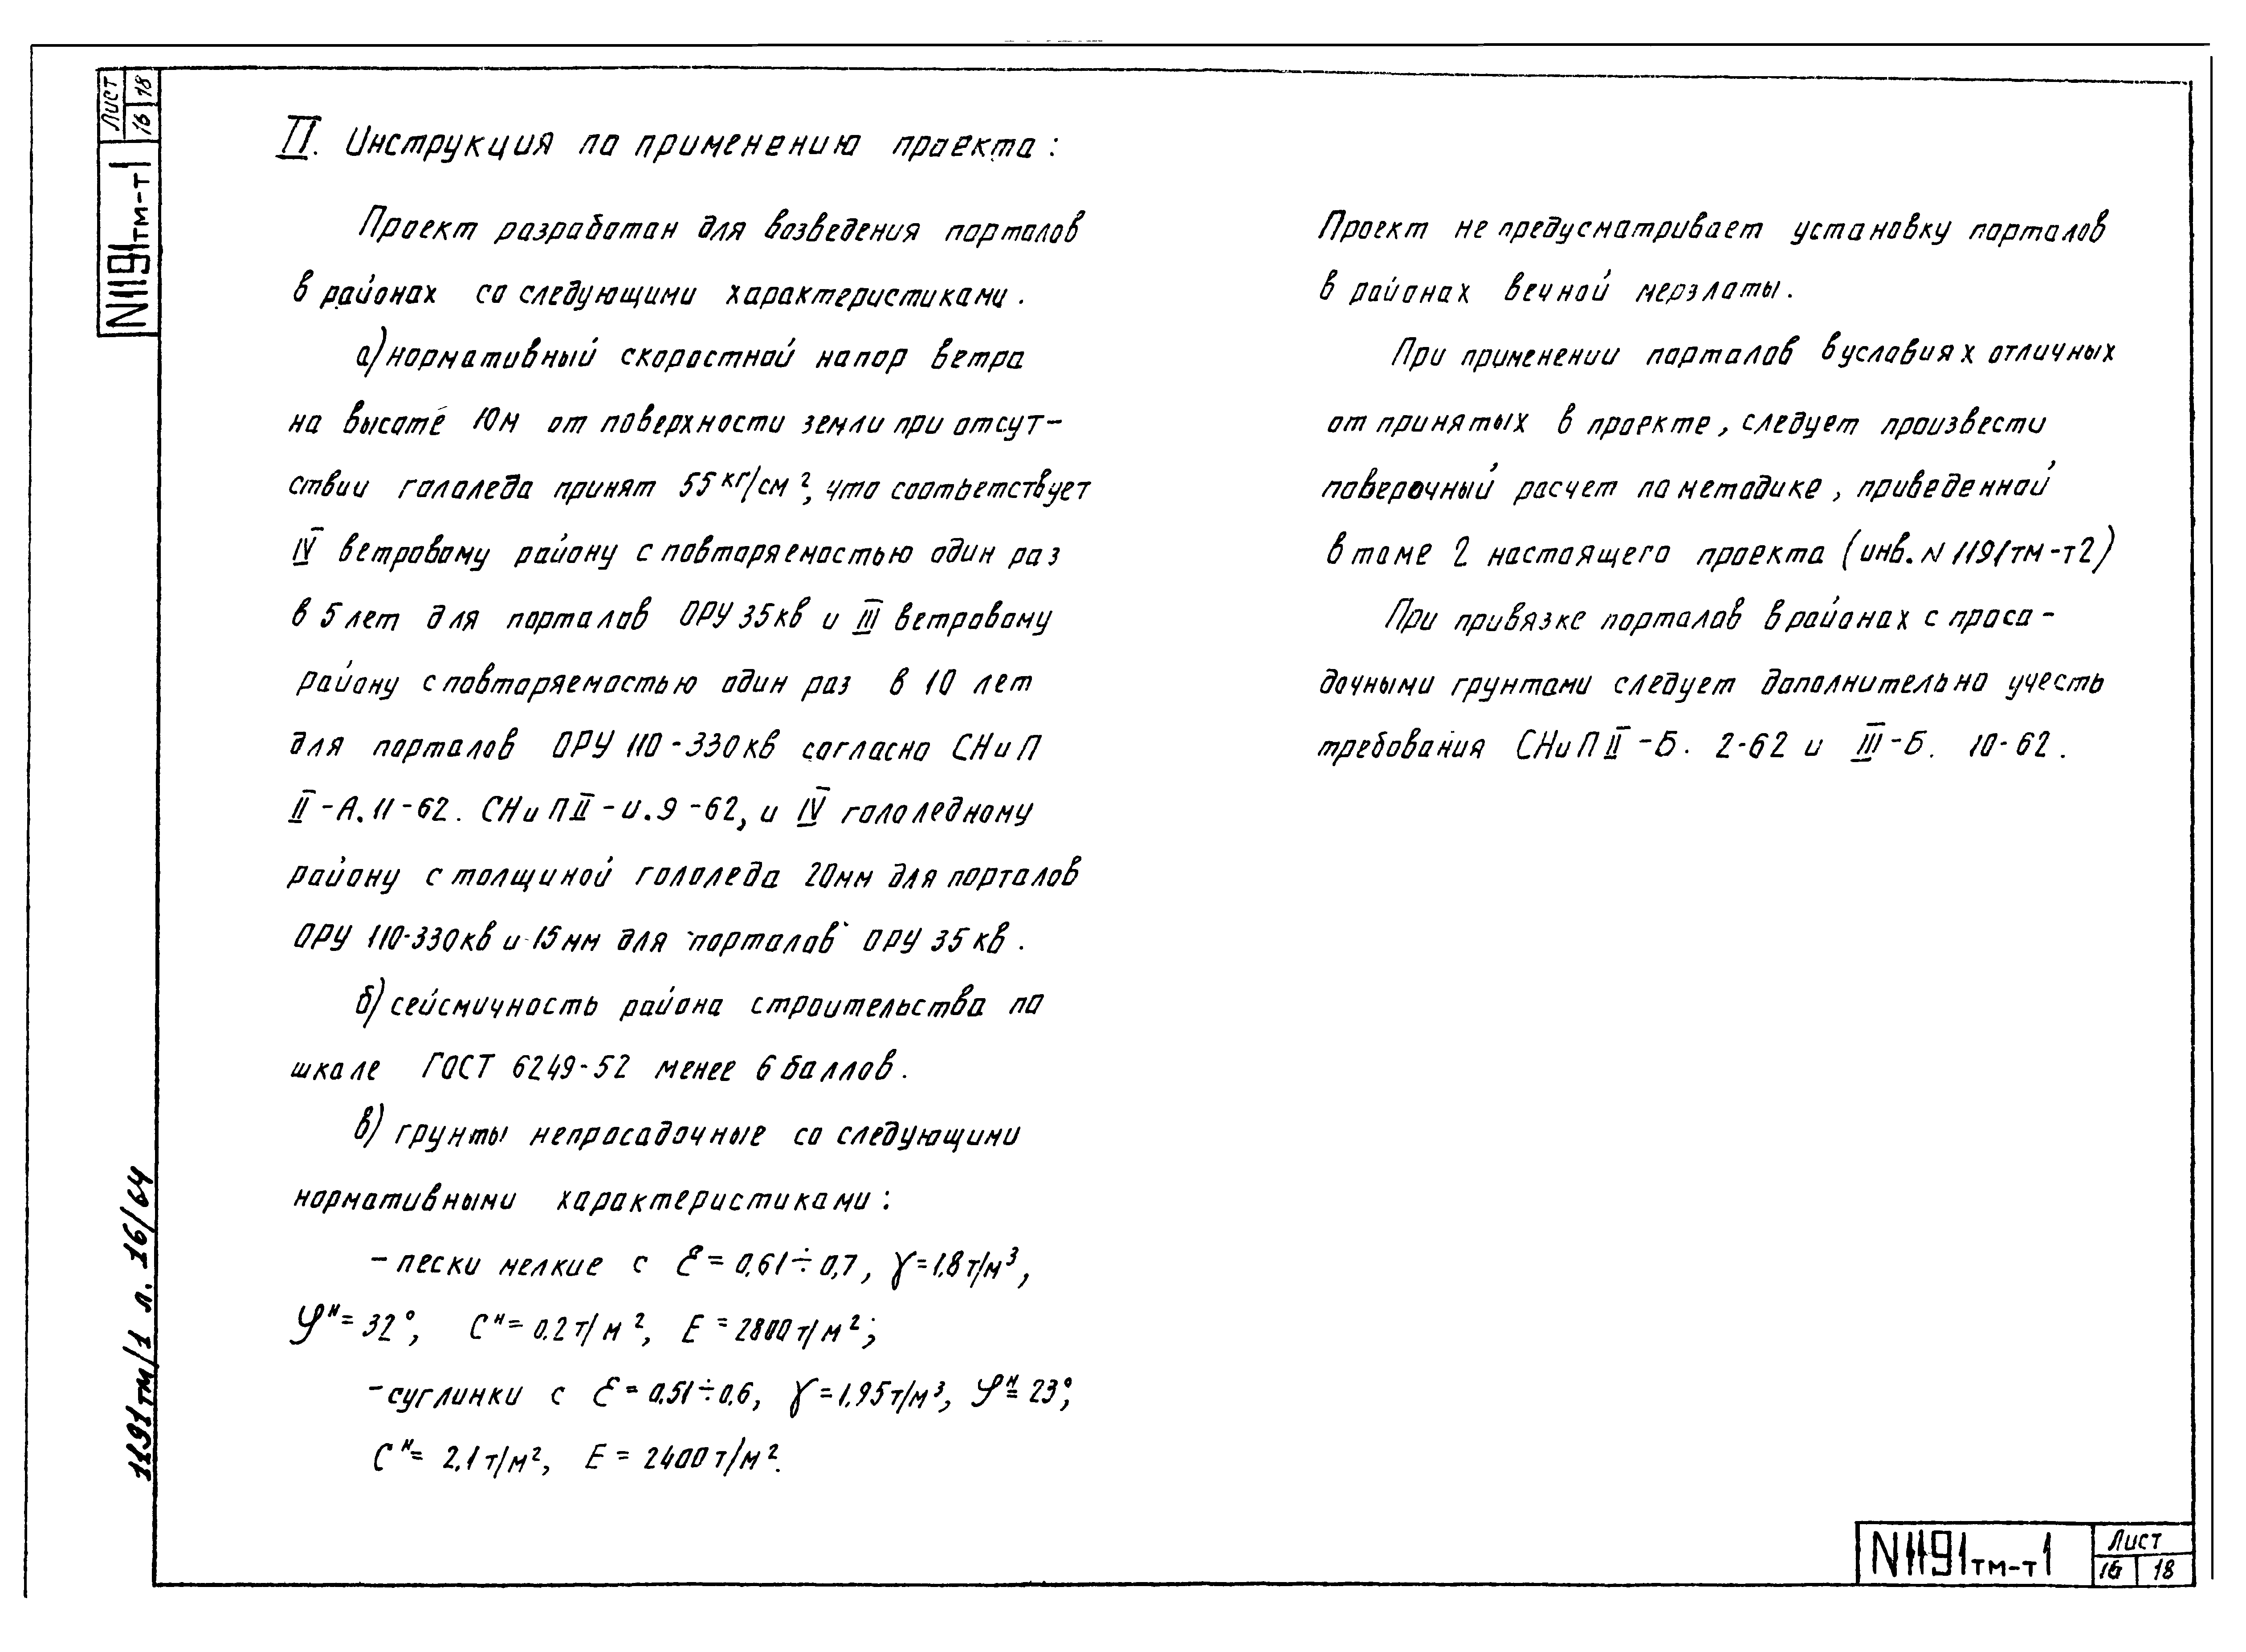 Лист
16 18
N1191тм-т1
II. Инструкция по применению проекта:
Проект разработан для возведения порталов
в районах со следующими характеристиками.
а) нормативный скоростной напор ветра
на высоте 10м от поверхности земли при отсут-
ствии гололеда принят 55 кг/см², что соответствует
IV ветровому району с повторяемостью один раз
в 5 лет для порталов ОРУ 35кв и III ветровому
району с повторяемостью один раз в 10 лет
для порталов ОРУ 110-330кв согласно СНиП
II-А.11-62. СНиП II-и.9-62, и IV гололедному
району с толщиной гололеда 20мм для порталов
ОРУ 110-330кв и 15мм для порталов ОРУ 35кв.
б) сейсмичность района строительства по
шкале ГОСТ 6249-52 менее 6 баллов.
в) грунты непросадочные со следующими
нормативными характеристиками:
- пески мелкие с Ɛ=0,61÷0,7, γ=1,8т/м³,
φᴴ=32°, Cᴴ=0.2т/м², E=2800т/м²;
- суглинки с Ɛ=0.51÷0.6, γ=1,95т/м³, φᴴ=23°,
Cᴴ= 2,1т/м², E=2400т/м².
Проект не предусматривает установку порталов
в районах вечной мерзлоты.
При применении порталов в условиях отличных
от принятых в проекте, следует произвести
поверочный расчет по методике, приведенной
в томе 2 настоящего проекта (инв. N 1191тм-т2)
При привязке порталов в районах с проса-
дочными грунтами следует дополнительно учесть
требования СНиП II-Б. 2-62 и III-Б. 10-62.
1191тм/1 л. 16/64
N1191тм-т1
Лист
16 18